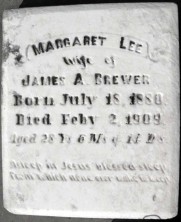 (MARGARET LEE)
Wife of
JAMES A. BREWER
Born July 18, 1880
Died Feby 2, 1909
Aged 28 Ys 6 Ms 14 Ds
Asleep in Jesus blessed sleep
From which none ever